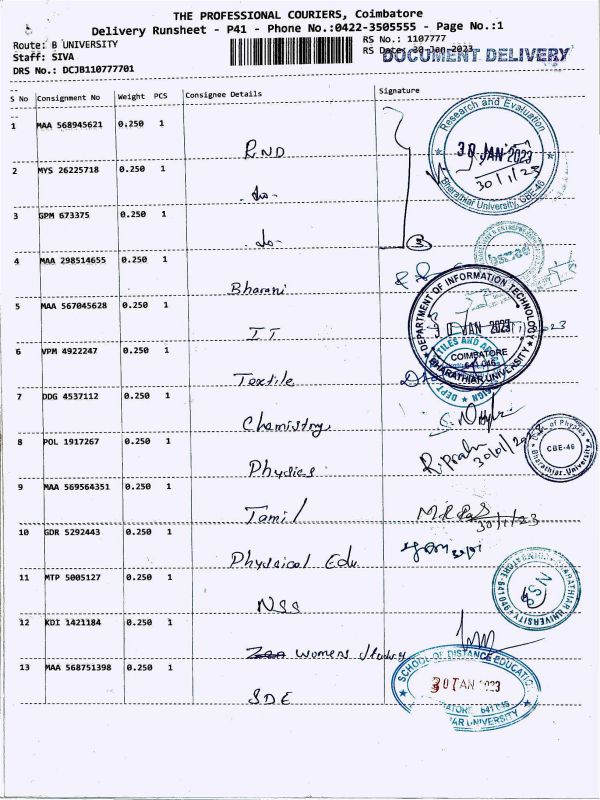 THE PROFESSIONAL COURIERS, Coimbatore
Delivery Runsheet - P41 - Phone No.:0422-3505555 - Page No.:1
Route: B UNIVERSITY
Staff: SIVA
DRS No.: DCJB110777701
RS No.: 1107777
RS Date: 30-Jan-2023
DOCUMENT DELIVERY
S No Consignment No Weight PCS Consignee Details Signature
1 MAA 568945621 0.250 1
RND
2 MYS 26225718 0.250 1
-do-
3 GPM 673375 0.250 1
-do-
3
4 MAA 298514655 0.250 1
Bharani
5 MAA 567045628 0.250 1
IT
6 VPM 4922247 0.250 1
Textile
7 DDG 4537112 0.250 1
Chemistry
8 POL 1917267 0.250 1
Physics
9 MAA 569564351 0.250 1
Tamil
10 GDR 5292443 0.250 1
Physical Edu
11 MTP 5005127 0.250 1
NSS
12 KDI 1421184 0.250 1
Womens Studies
13 MAA 568751398 0.250 1
SDE
Research and Evaluation
30 JAN 2023
30/1/23
Bharathiar University, CBE-46
DEPARTMENT OF INFORMATION TECHNOLOGY
30 JAN 2023
COIMBATORE
641 046
BHARATHIAR UNIVERSITY
R. Prabu
30/01/2023
Dept. of Physics
CBE-46
Bharathiar University
30/1/23
NSS
BHARATHIAR UNIVERSITY
SCHOOL OF DISTANCE EDUCATION
30 JAN 2023
641 046